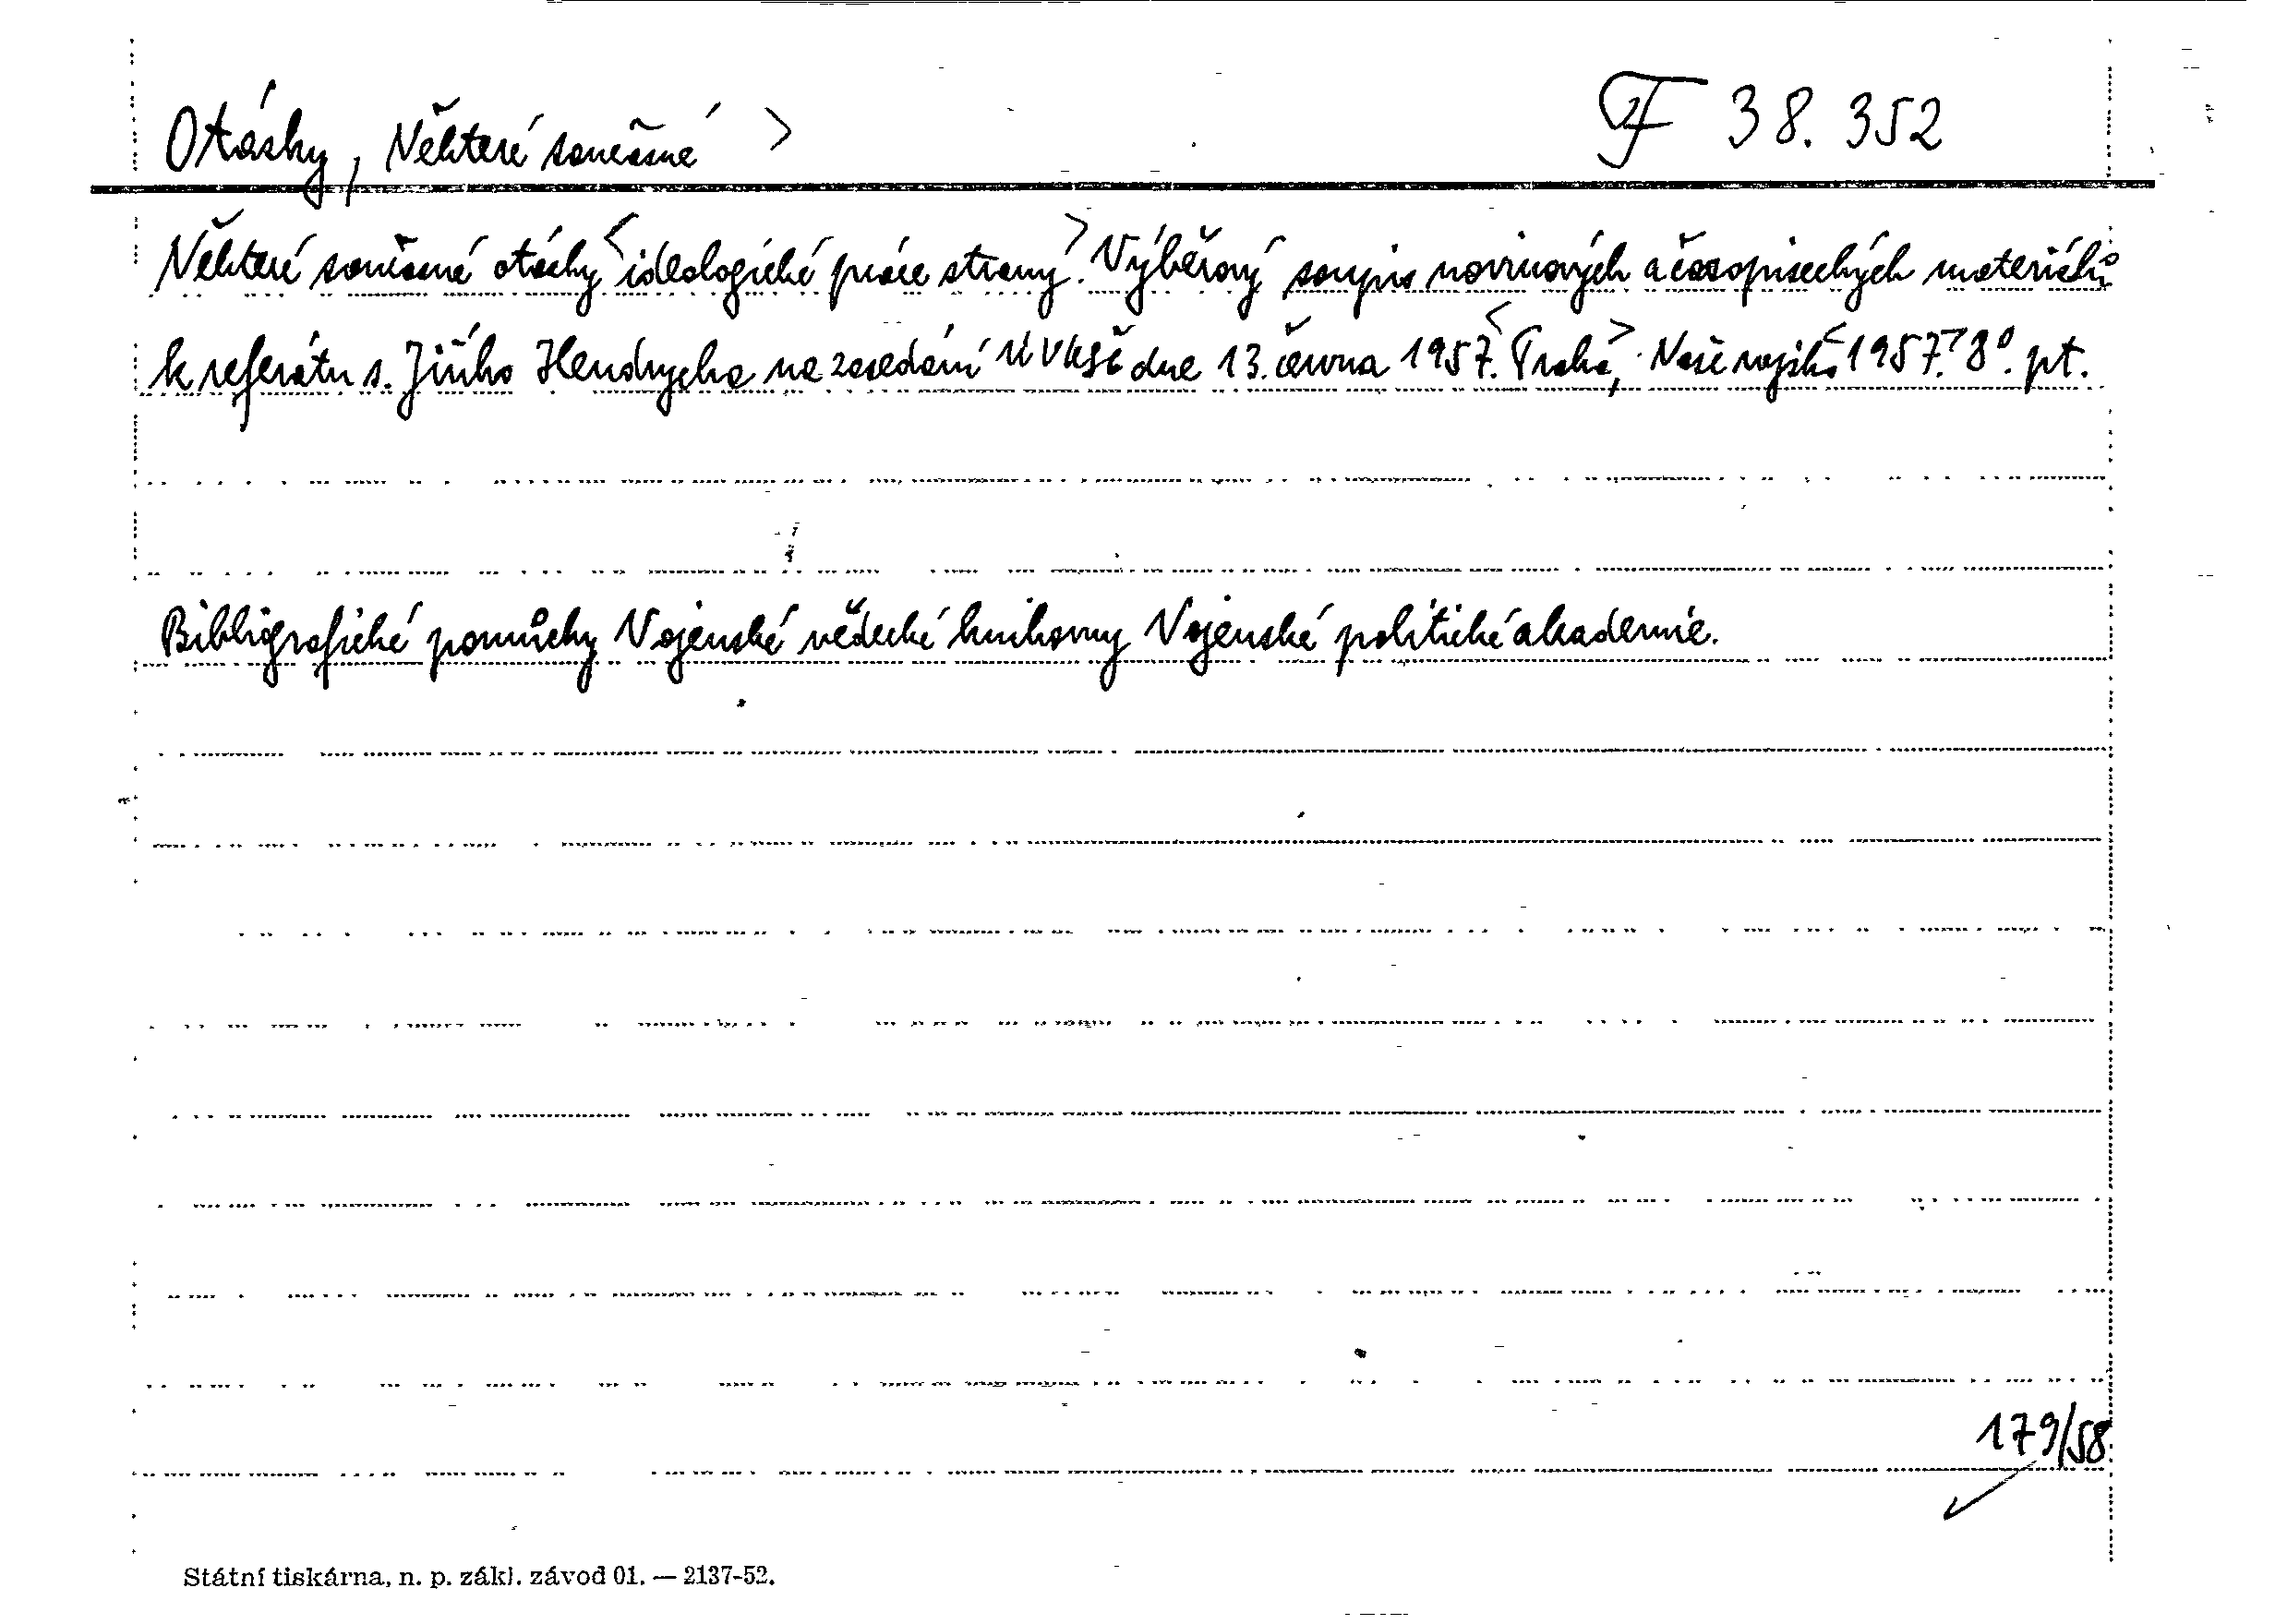 Otázky, Některé současné > F 38.352
Některé současné otázky < ideologické práce strany. > Výběrový soupis novinových a časopiseckých materiálů
k referátu s. Jiřího Hendrycha na zasedání ÚV KSČ dne 13. června 1957. < Praha, > Naše vojsko < 1957. > 8°. pt.
Bibliografické pomůcky Vojenské vědecké knihovny Vojenské politické akademie.
179/58
Státní tiskárna, n. p. zákl. závod 01. — 2137-52.